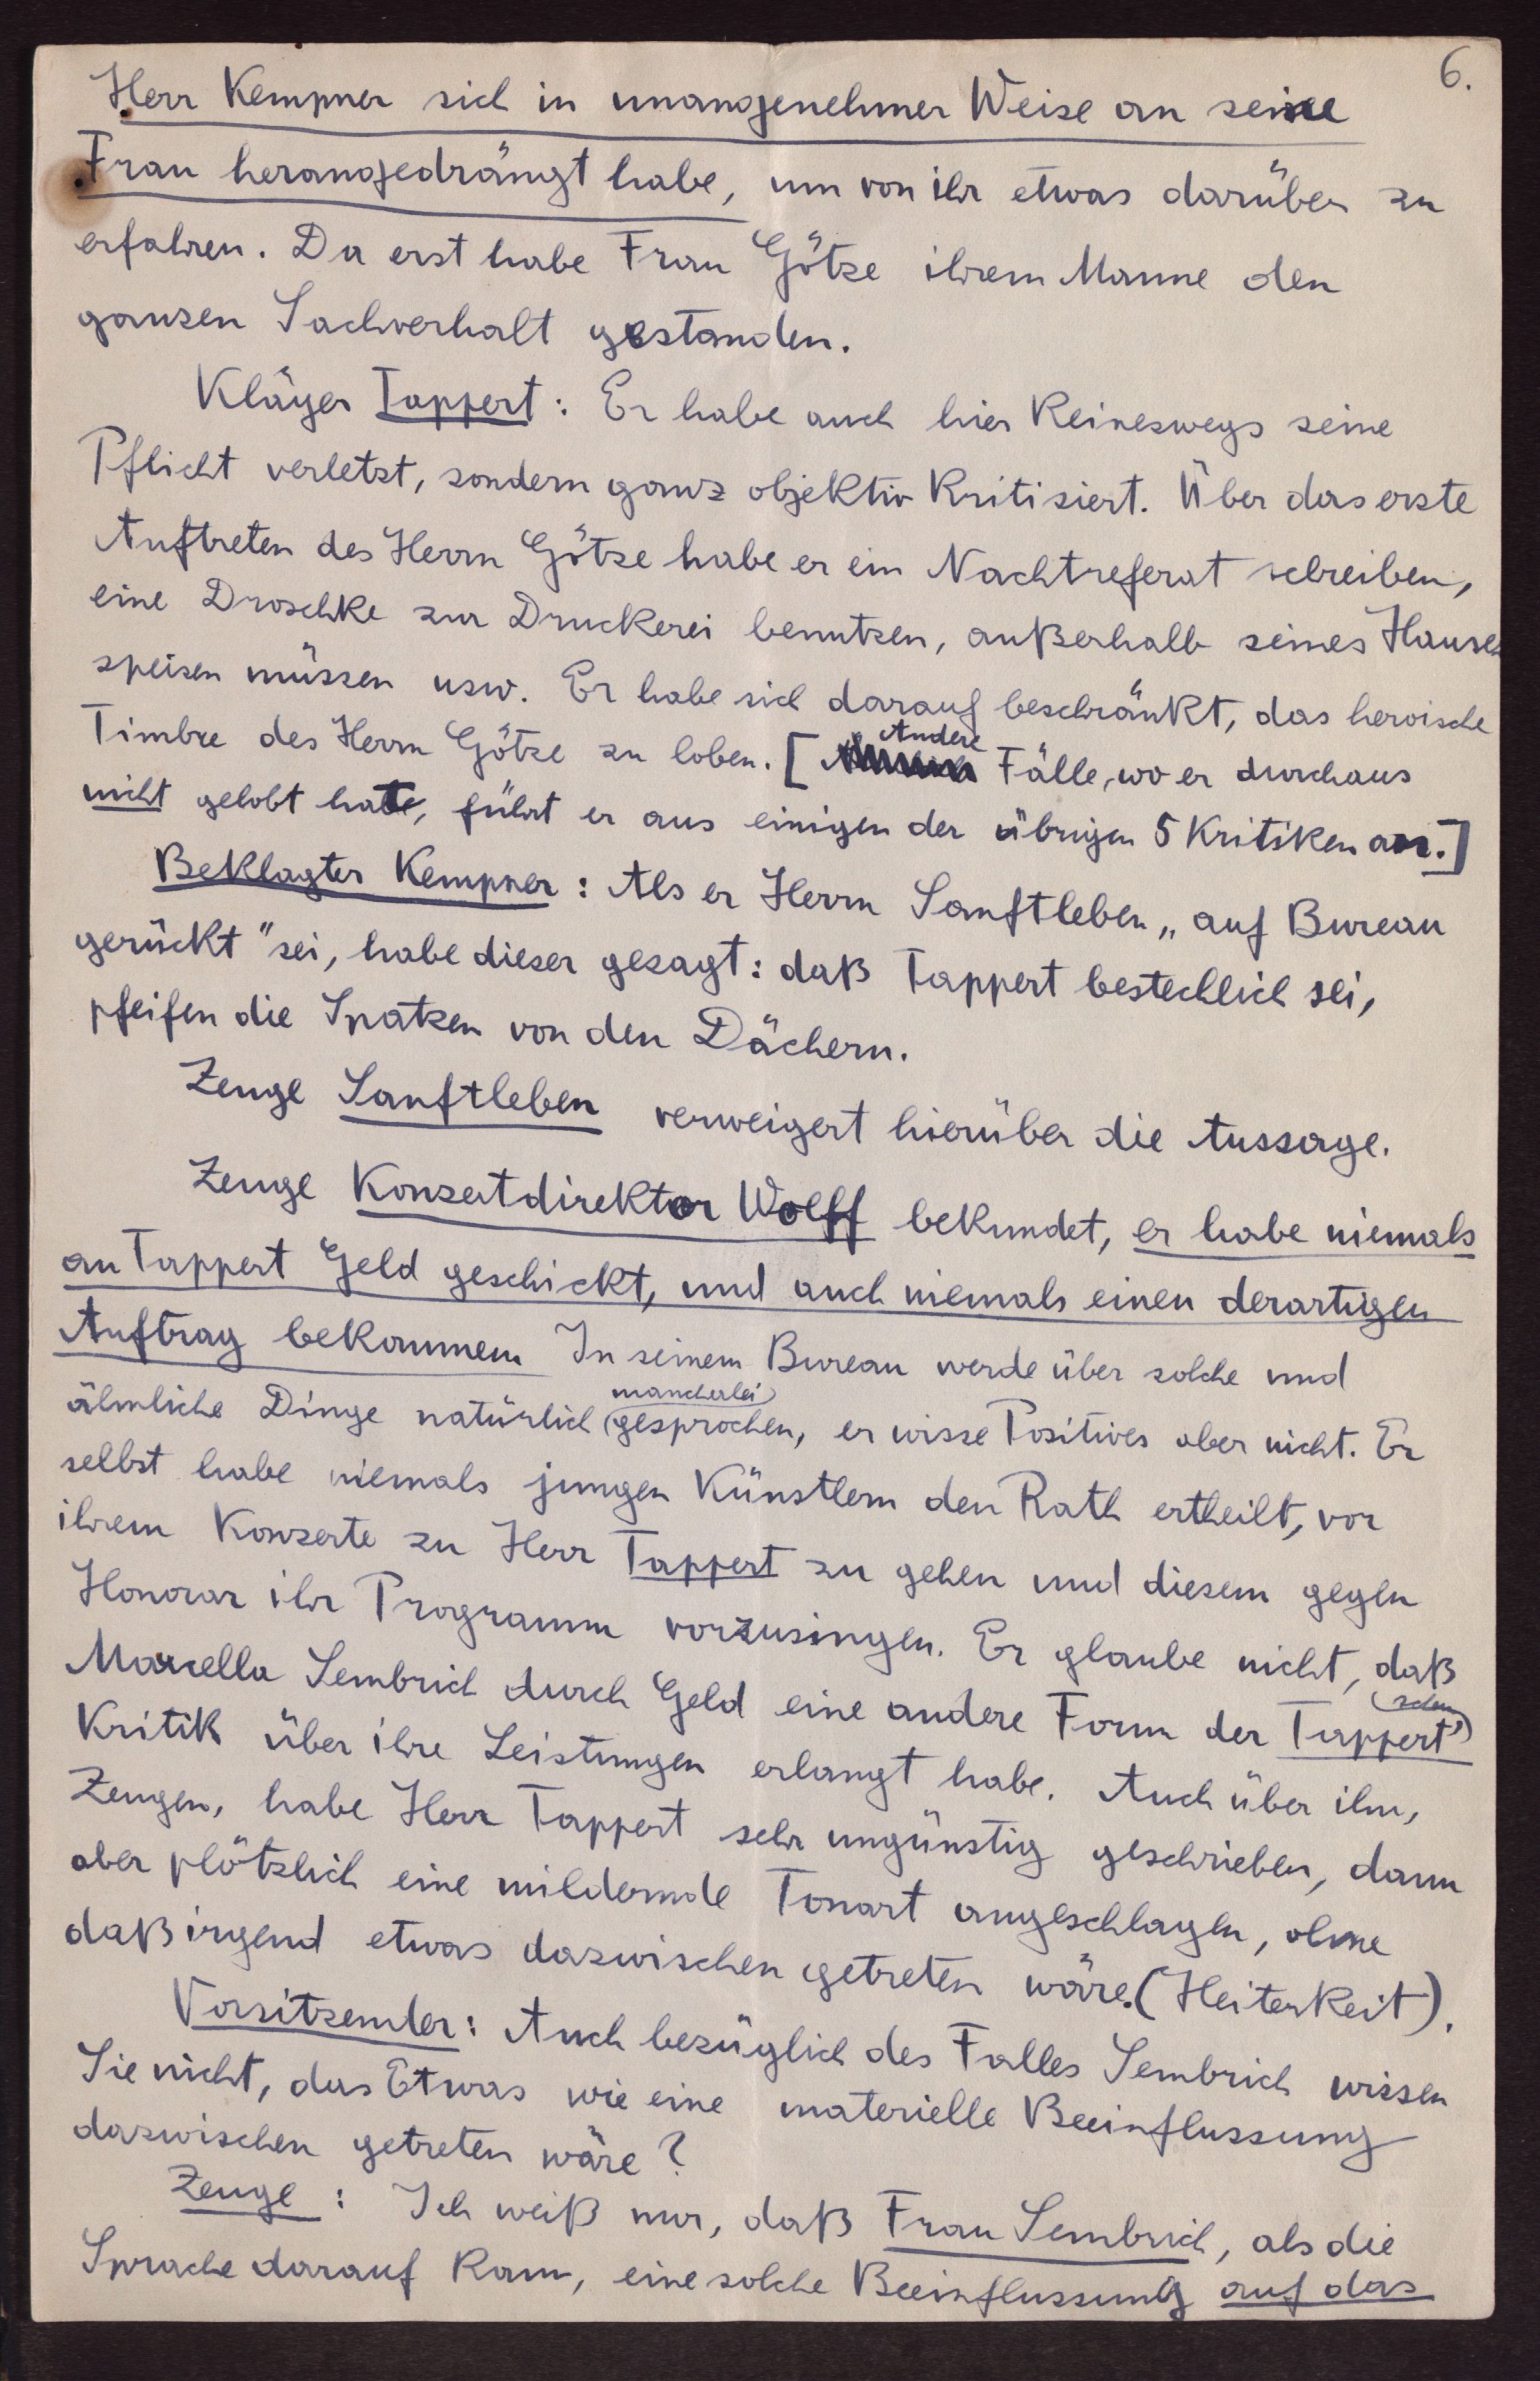 6.
Herr Kempner sich in unangenehmer Weise an seine
Frau herangedrängt habe, um von ihr etwas darüber zu
erfahren. Da erst habe Frau Götze ihrem Manne den
ganzen Sachverhalt gestanden.
Kläger Tappert: Er habe auch hier keineswegs seine
Pflicht verletzt, sondern ganz objektiv kritisiert. Über das erste
Auftreten des Herrn Götze habe er ein Nachtreferat schreiben,
eine Droschke zur Druckerei benutzen, außerhalb seines Hauses
speisen müssen usw. Er habe sich darauf beschränkt, das heroische
Timbre des Herrn Götze zu loben. [Andere Fälle, wo er durchaus
nicht gelobt hatte, führt er aus einigen der übrigen 5 Kritiken an.]
Beklagter Kempner: Als er Herrn Sanftleben „auf Bureau
gerückt" sei, habe dieser gesagt: daß Tappert bestechlich sei,
pfeifen die Spatzen von den Dächern.
Zeuge Sanftleben verweigert hierüber die Aussage.
Zeuge Konzertdirektor Wolff bekundet, er habe niemals
an Tappert Geld geschickt, und auch niemals einen derartigen
Auftrag bekommen. In seinem Bureau werde über solche und
ähnliche Dinge natürlich mancherlei gesprochen, er wisse Positives aber nicht. Er
selbst habe niemals jungen Künstlern den Rath ertheilt, vor
ihrem Konzerte zu Herr Tappert zu gehen und diesem gegen
Honorar ihr Programm vorzusingen. Er glaube nicht, daß
Marcella Sembrich durch Geld eine andere Form der Tappert'schen
Kritik über ihre Leistungen erlangt habe. Auch über ihn,
Zeugen, habe Herr Tappert sehr ungünstig geschrieben, dann
aber plötzlich eine mildernde Tonart angeschlagen, ohne
daß irgend etwas dazwischen getreten wäre. (Heiterkeit).
Vorsitzender: Auch bezüglich des Falles Sembrich wissen
Sie nicht, das Etwas wie eine materielle Beeinflussung
dazwischen getreten wäre?
Zeuge: Ich weiß nur, daß Frau Sembrich, als die
Sprache darauf kam, eine solche Beeinflussung auf das